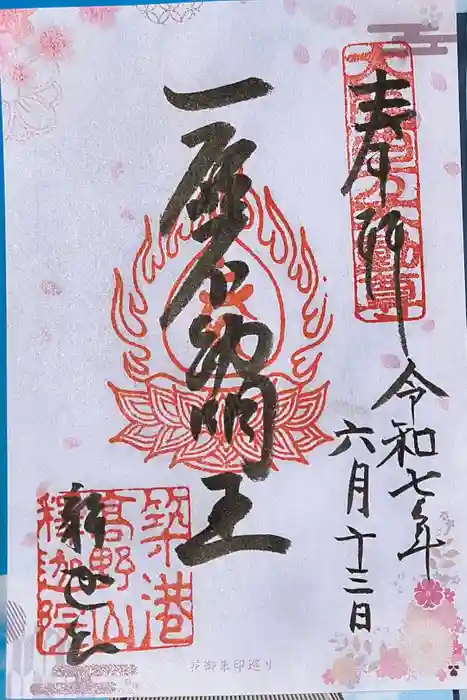 奉拝
令和七年
六月十三日
一願不動明王
釈迦院
築港
高野山
釋迦院
花御朱印巡り